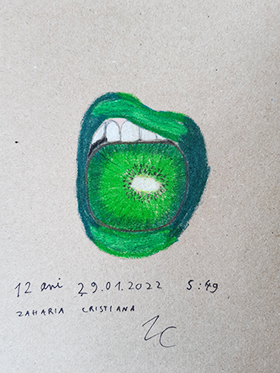 12 ani 29.01.2022 5:49
ZAHARIA CRISTIANA
ZC